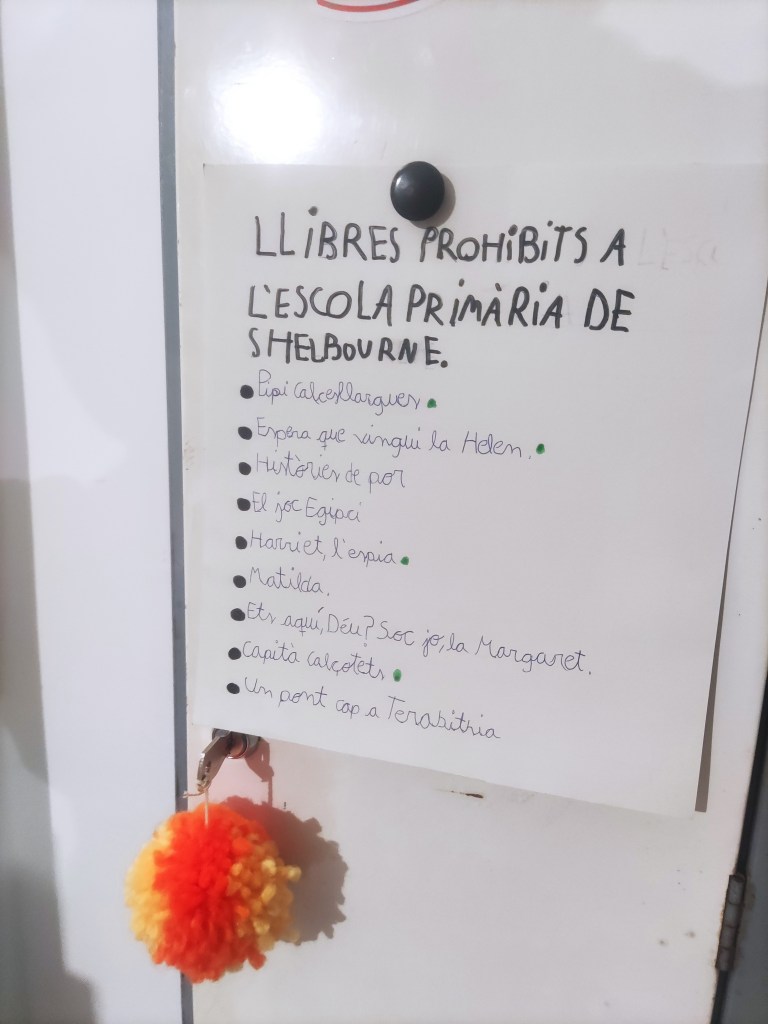 LLiBRES PROHiBiTS A
L'ESCOLA PRiMÀRiA DE
SHELBOURNE.
Pipi Calcesllargues
Espera que vingui la Helen.
Històries de por
El joc Egipci
Harriet, l'espia
Matilda.
Ets aquí, Déu? Soc jo, la Margaret.
Capità Calçotets
Un pont cap a Terabithia